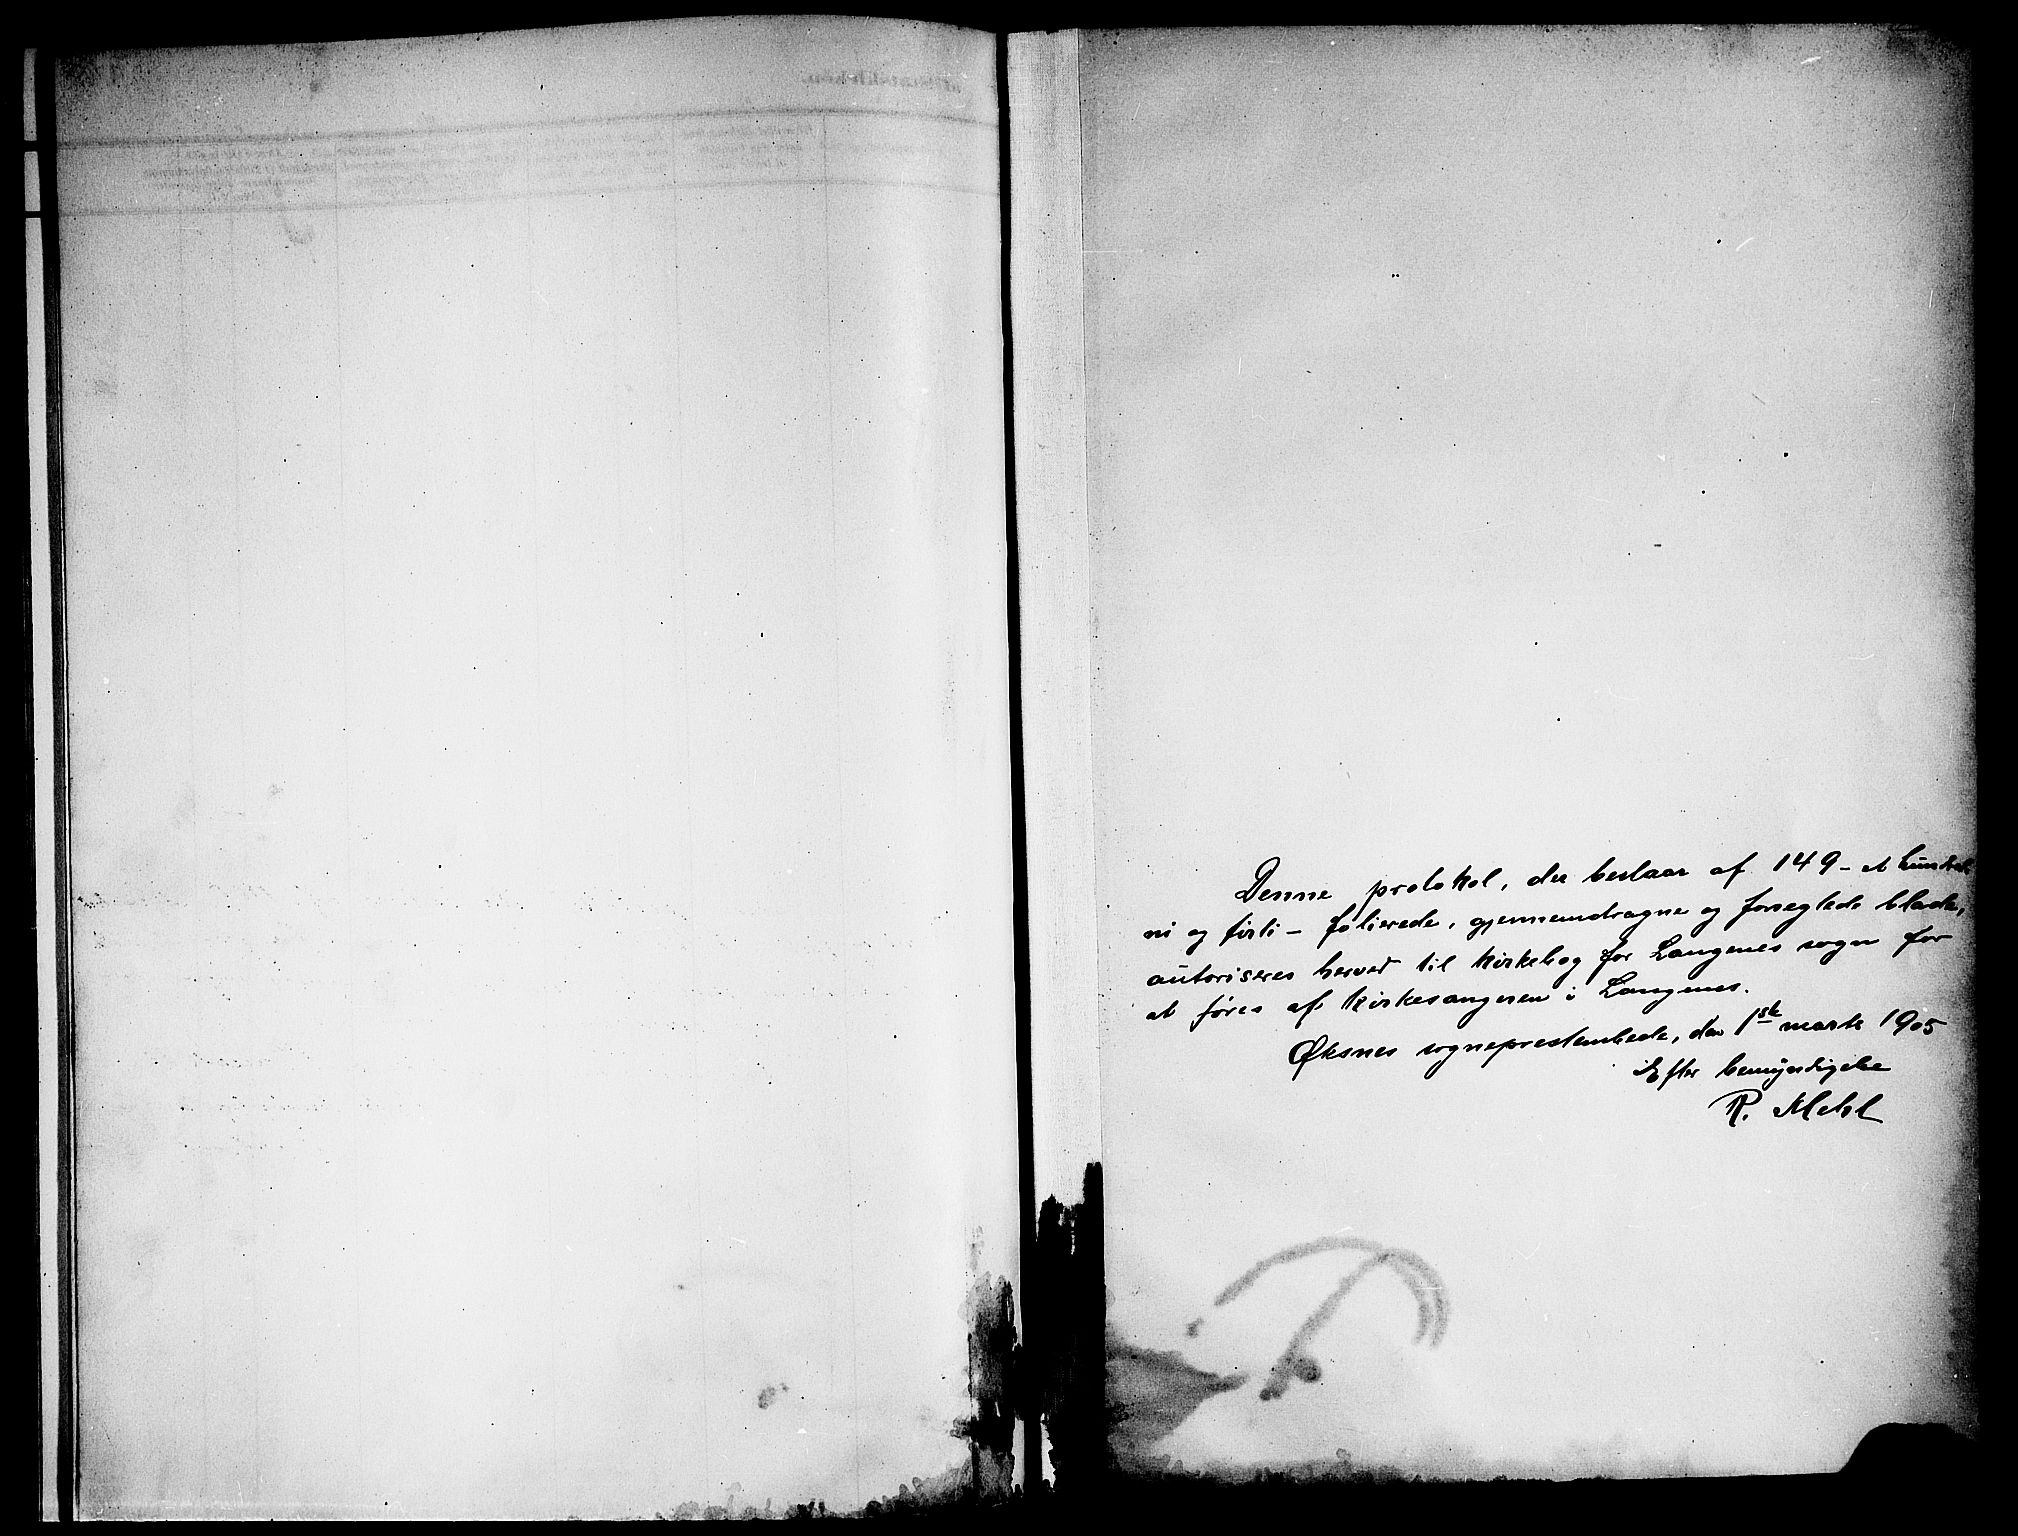 Denne protokol, der bestaar af 149 – et hundrede
ni og firti – folierede, gjennemdragne og forseglede blade,
autoriseres herved til kirkebog for Langenes sogn for
at føres af kirkesangeren i Langenes.
Øksnes sogneprestembede, den 1ste marts 1905
Efter bemyndigelse
R. Mehl